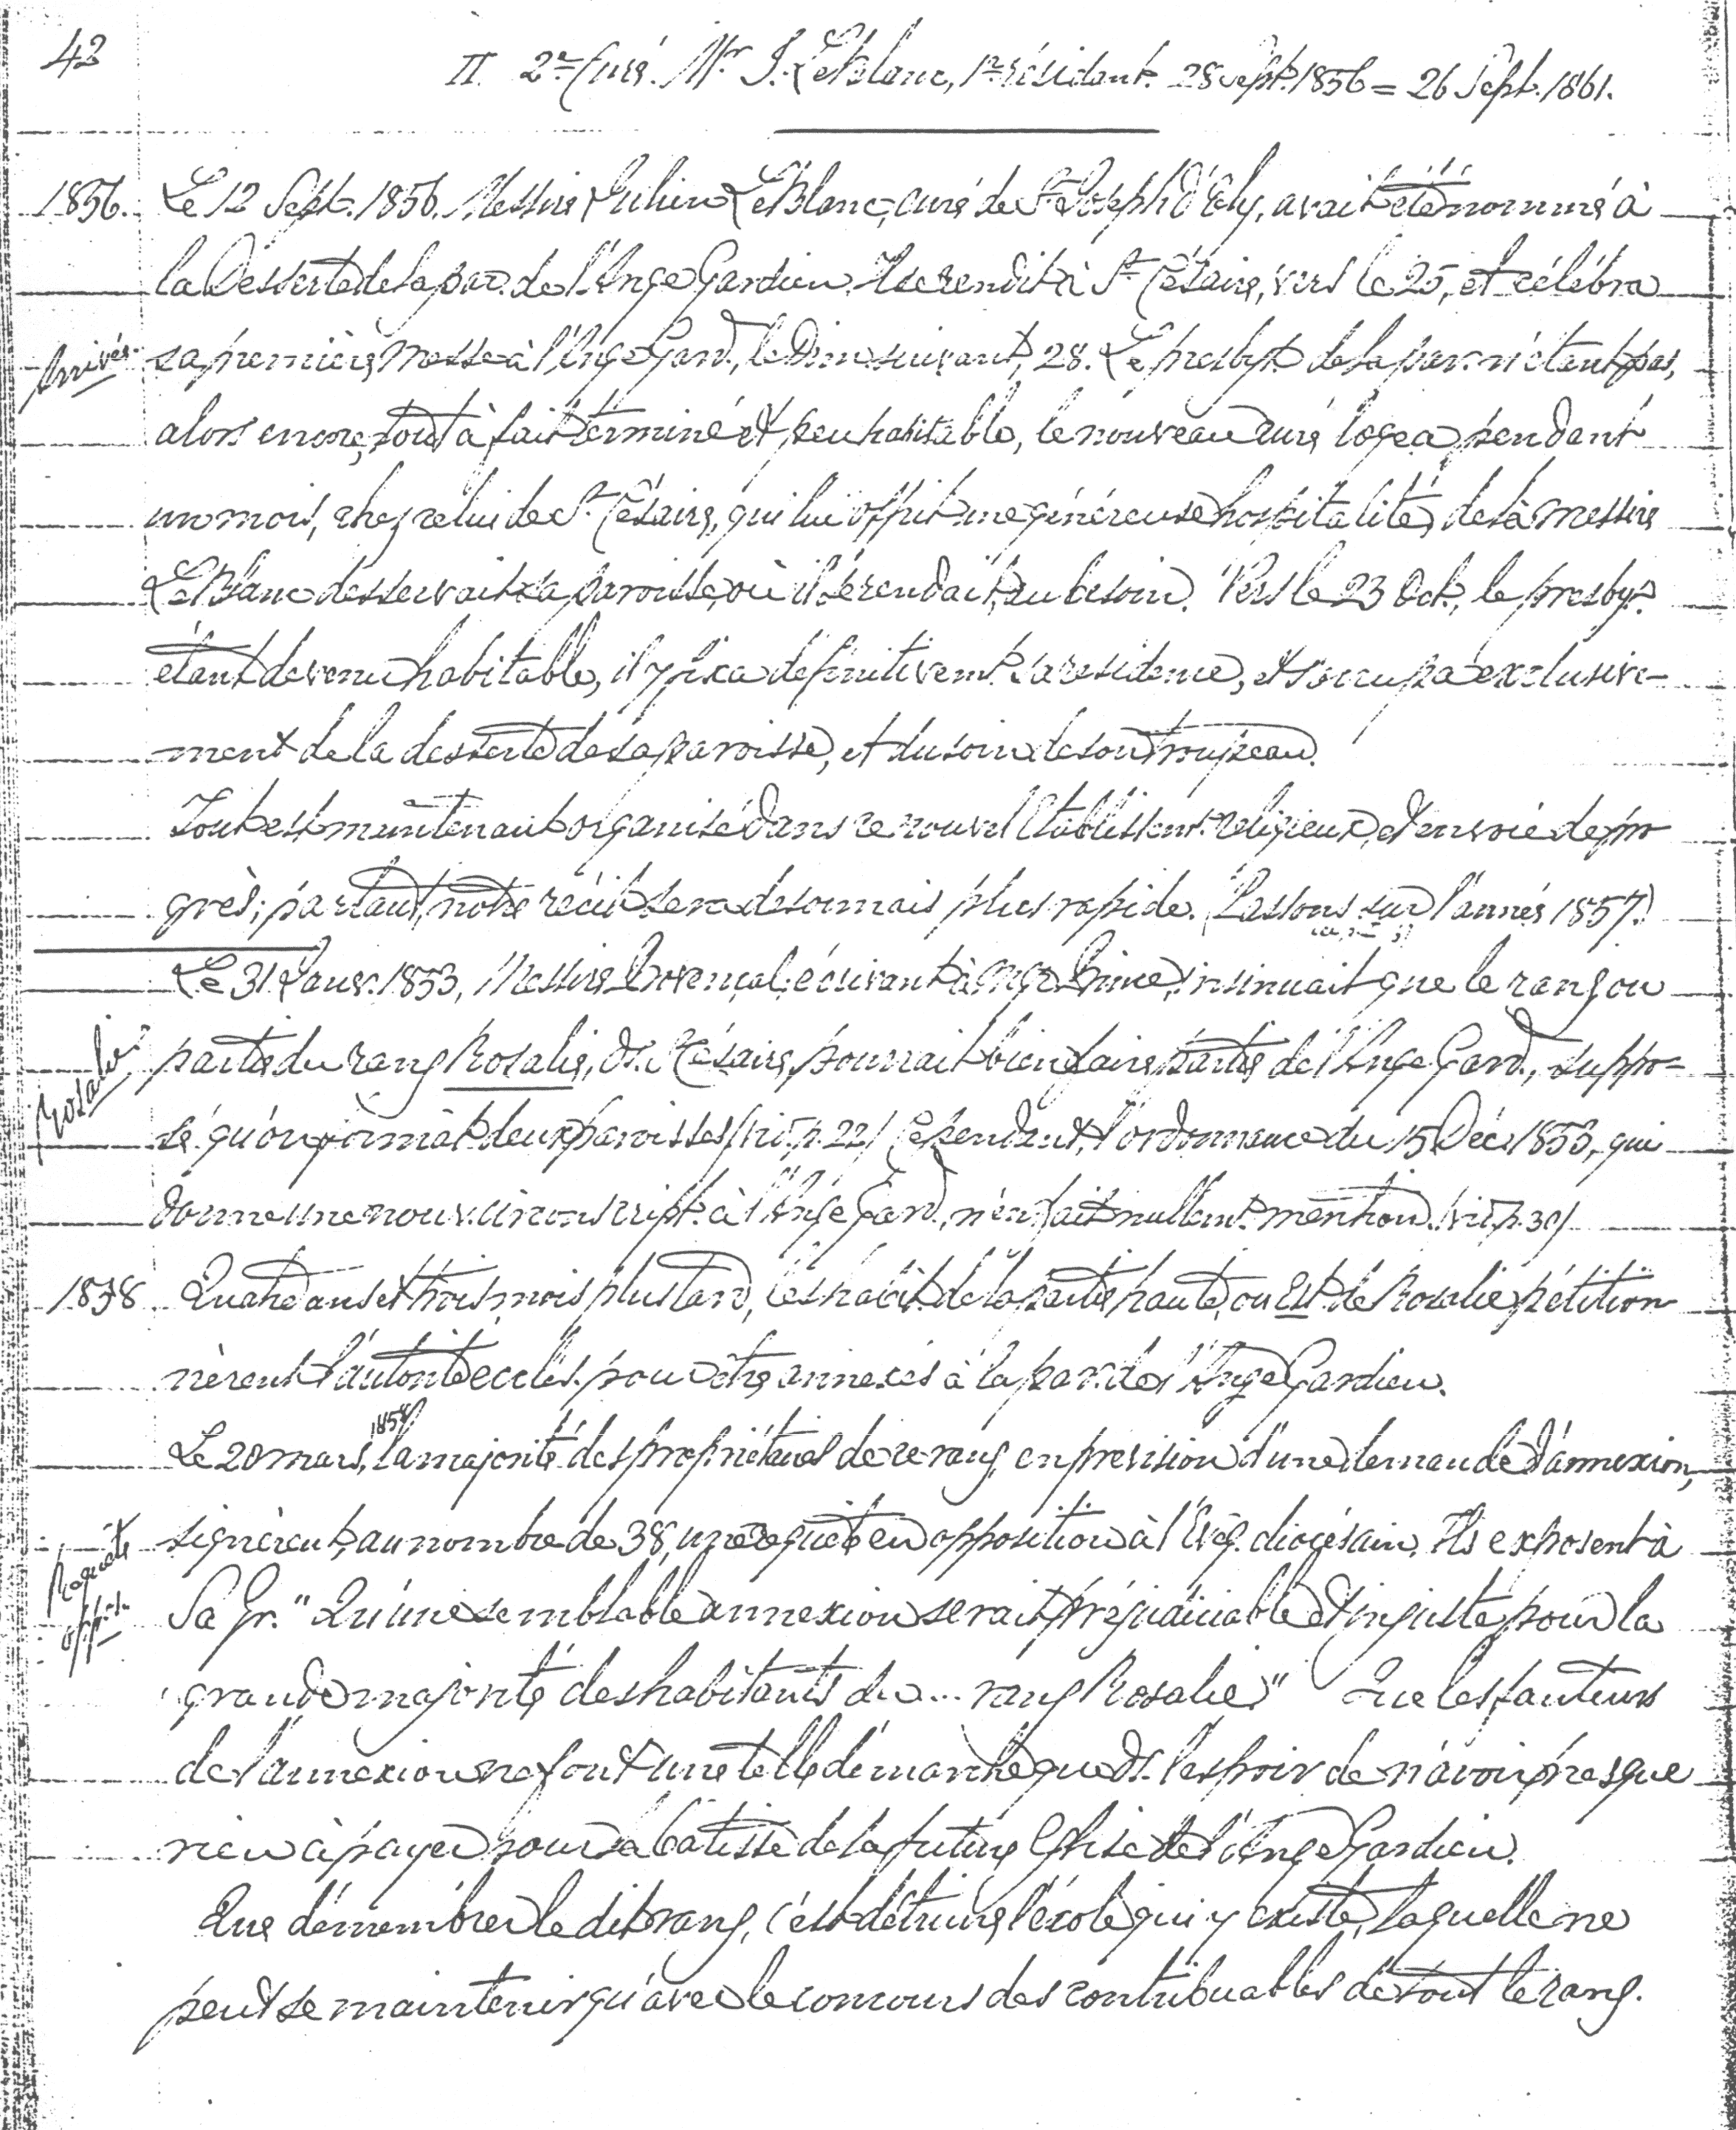 42
II 2e Curé. Mr J. LeBlanc, 1er résident. 28 Sept. 1856 = 26 Sept. 1861.
1856. Le 12 Sept. 1856. Messire Julien LeBlanc, curé de St Joseph d'Ely, avait été nommé à
la Desserte de la par. de l'Ange Gardien. Il se rendit à St Césaire, vers le 25, et célébra
Arrivée sa première Messe à l'Ange Gard., le Dim. suivant, 28. Le presbyt. de la par. n'étant pas,
alors encore, tout à fait terminé et peu habitable, le nouveau curé logea, pendant
un mois, chez celui de St Césaire, qui lui offrit une généreuse hospitalité, de là Messire
LeBlanc desservait sa paroisse, où il se rendait, au besoin. Vers le 23 Oct., le presbyt.
étant devenu habitable, il y fixa définitivemt. sa résidence, et s'occupa exclusive-
ment de la desserte de sa paroisse, et du soin de son troupeau.
Tout est maintenant organisé dans ce nouvel Etablissemt. religieux, et en voie de pro
grès; partant, notre récit sera desormais plus rapide. (Passons sur l'année 1857.)
Le 31 Janv. 1853, Messire Provençal, écrivant à Mgr Prince, insinuait que le rang ou
Rosalie partie du rang Rosalie, ds. St Césaire, pourrait bien faire partie de l'Ange Gard., suppo-
sé qu'on formât deux paroisses (vid. p. 22) Cependant, l'ordonnance du 15 Déc. 1853, qui
donne une nouv. circonscript. à l'Ange Gard., n'en fait nullemt. mention. (vid. p. 30)
1858 Quatre ans et trois mois plus tard, les habit. de la partie haute, ou Est de Rosalie pétition
nèrent l'autorité ecclés. pour être annexés à la par. de l'Ange Gardien.
Le 20 mars, 1858, la majorité des propriétaires de ce rang, en prévision d'une demande d'annexion,
Requête signèrent, au nombre de 38, une requête en opposition à l'Evêq. diocésain. Ils exposent à
Sa Gr. "Qu'une semblable annexion serait préjudiciable et injuste pour la
grande majorité des habitants du ... rang Rosalie" Que les fauteurs
de l'annexion ne font une telle démarche que ds. l'espoir de n'avoir presque
rien à payer pour la batisse de la future Eglise de l'Ange Gardien.
Que démembrer le dit rang, c'est détruire l'école qui y existe, laquelle ne
peut se maintenir qu'avec le concours des contribuables de tout le rang.